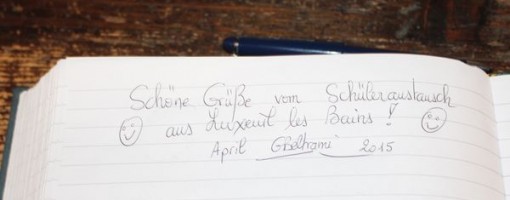 Schöne Grüße vom Schüleraustausch
aus Luxeuil les Bains !
April 2015